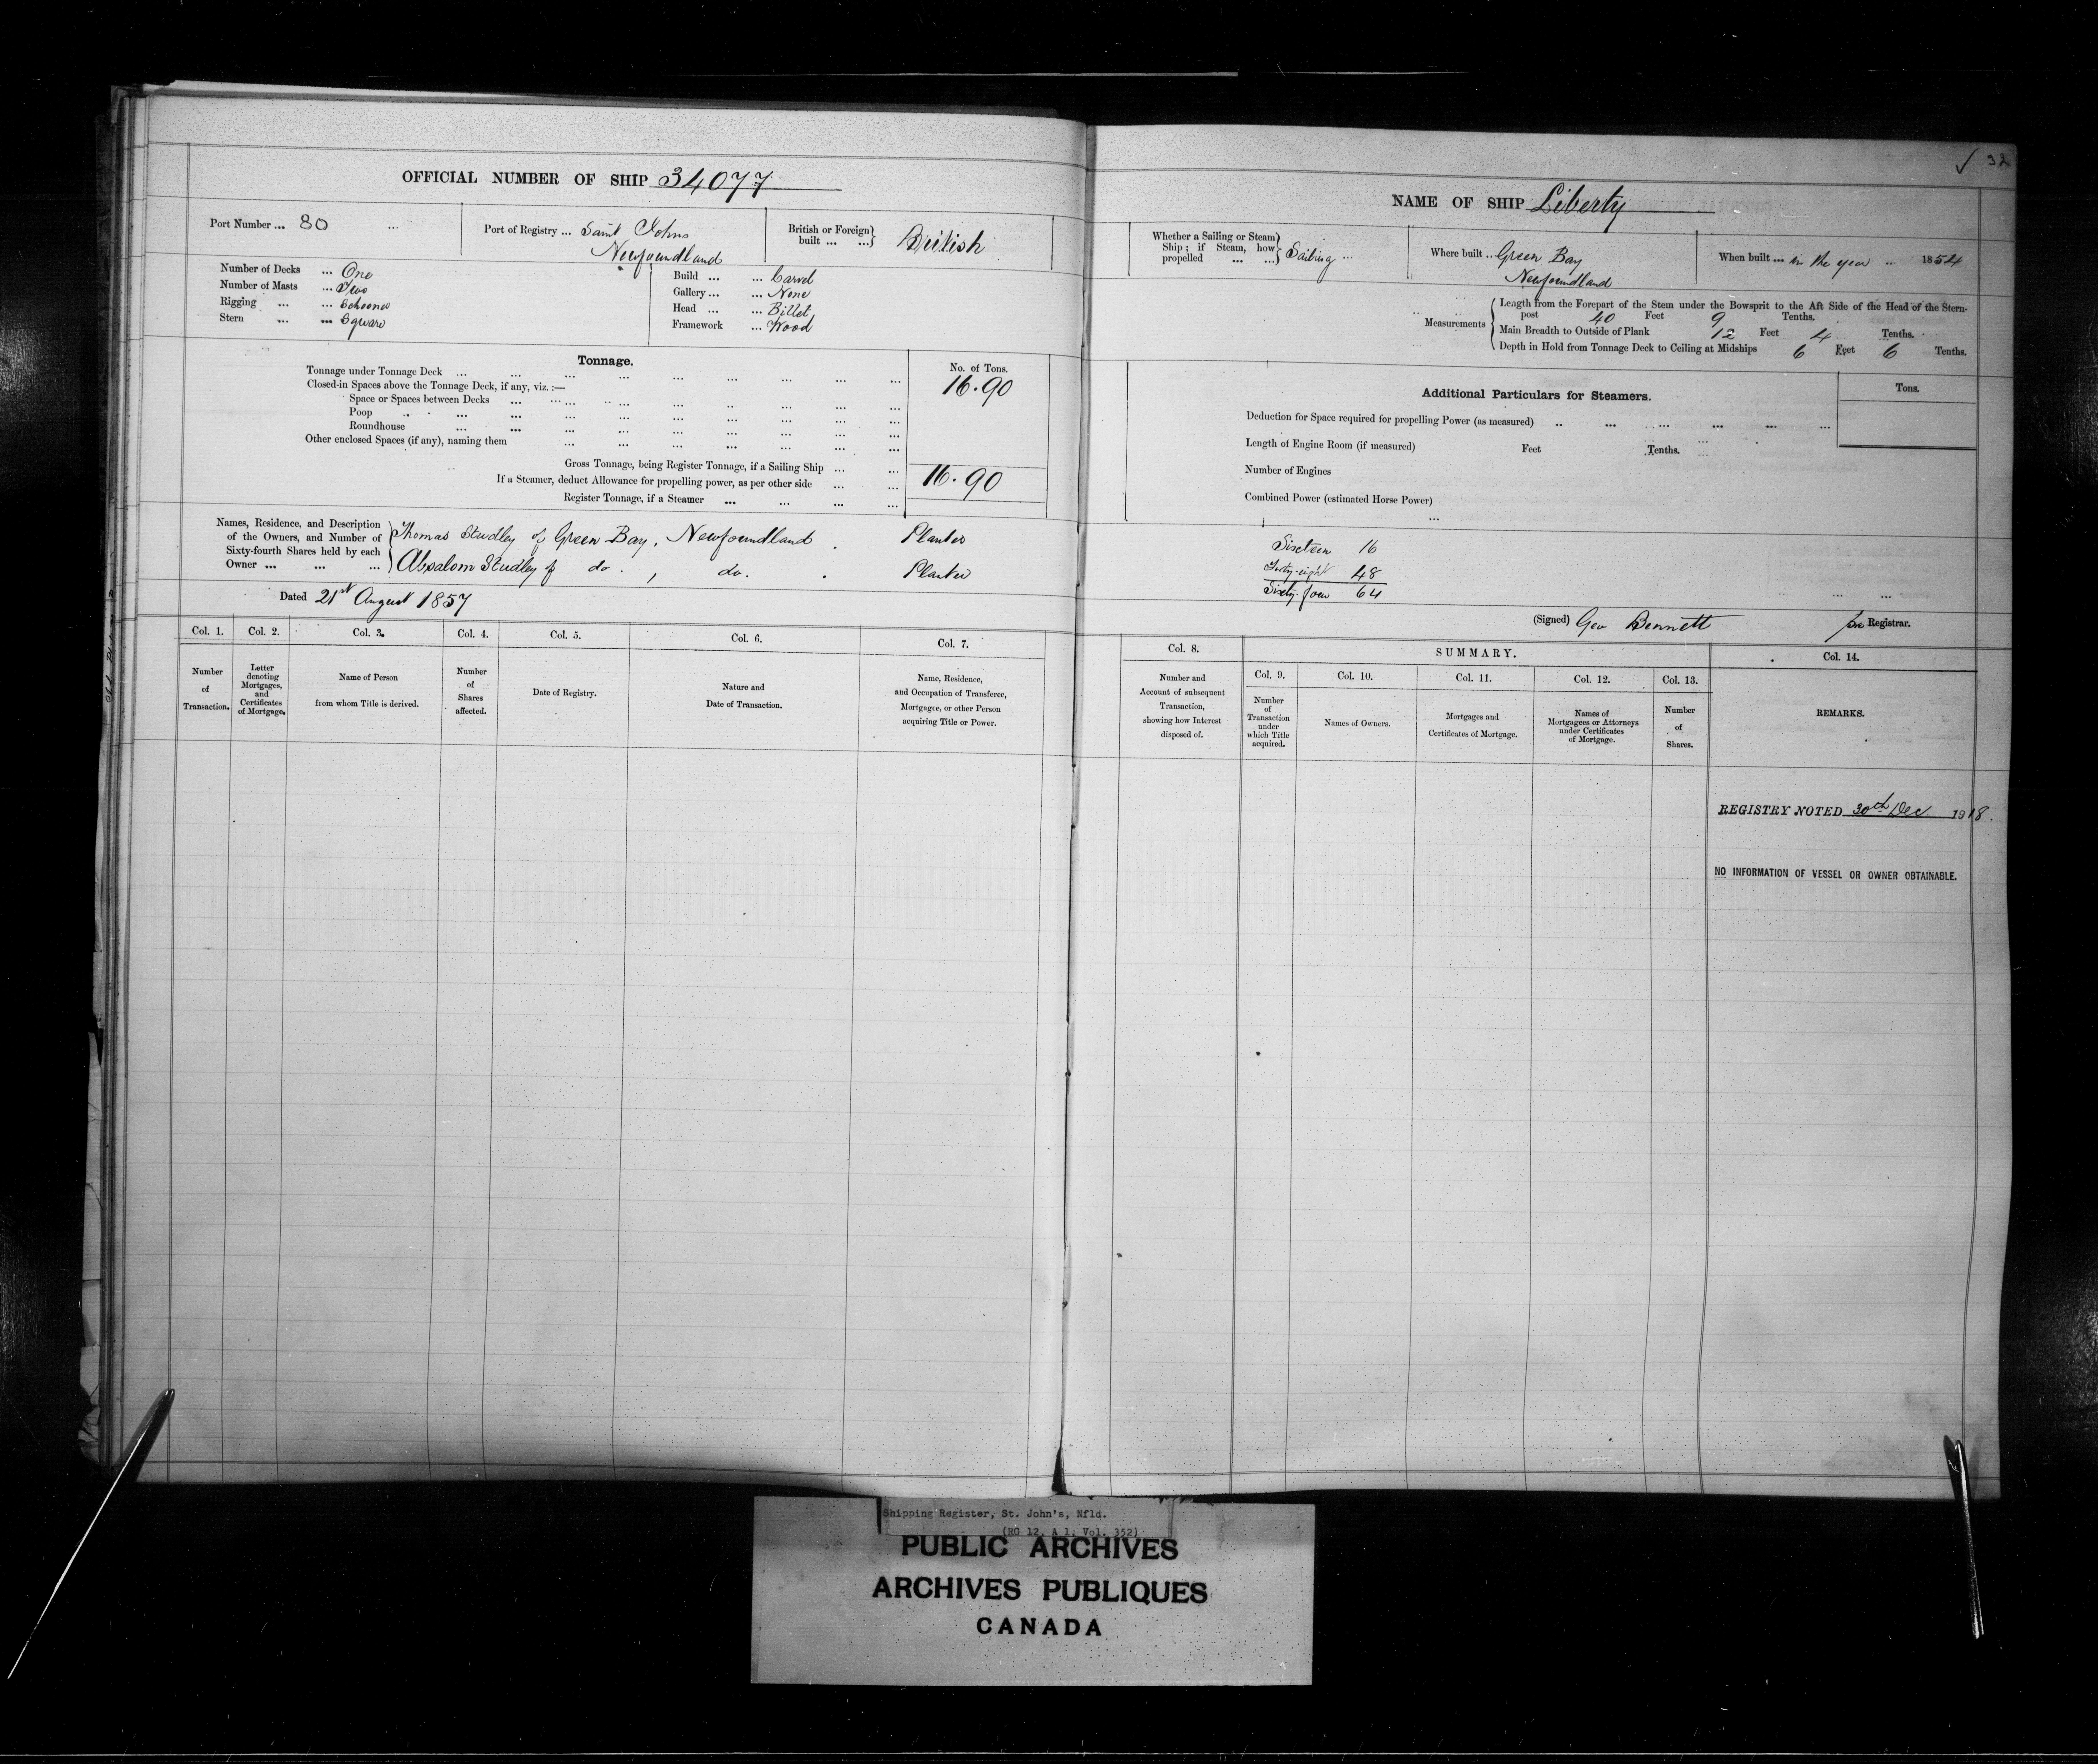 OFFICIAL NUMBER OF SHIP 34077
Port Number ... 80 ...
Port of Registry ... Saint Johns
Newfoundland
British or Foreign built ... ... British
Number of Decks ... One
Number of Masts ... Two
Rigging ... ... Schooner
Stern ... ... Square
Build ... ... Carvel
Gallery ... ... None
Head ... ... Billet
Framework ... Wood
Tonnage.
No. of Tons.
Tonnage under Tonnage Deck ... 16.90
Closed-in Spaces above the Tonnage Deck, if any, viz. :—
Space or Spaces between Decks ...
Poop ...
Roundhouse ...
Other enclosed Spaces (if any), naming them ...
Gross Tonnage, being Register Tonnage, if a Sailing Ship ... ... 16.90
If a Steamer, deduct Allowance for propelling power, as per other side ... ...
Register Tonnage, if a Steamer ... ... ... ...
Names, Residence, and Description
of the Owners, and Number of
Sixty-fourth Shares held by each
Owner ... ... ...
Thomas Studley of Green Bay, Newfoundland. Planter
Absalom Studley of do. , do. . Planter
Dated 21st August 1857
Col. 1. Col. 2. Col. 3. Col. 4. Col. 5. Col. 6. Col. 7.
Number of Transaction.
Letter denoting Mortgages, and Certificates of Mortgage.
Name of Person from whom Title is derived.
Number of Shares affected.
Date of Registry.
Nature and Date of Transaction.
Name, Residence, and Occupation of Transferee, Mortgagee, or other Person acquiring Title or Power.
32
NAME OF SHIP Liberty
Whether a Sailing or Steam
Ship ; if Steam, how
propelled ... ... Sailing ...
Where built ... Green Bay
Newfoundland
When built ... in the year ... 1854
Measurements
Length from the Forepart of the Stem under the Bowsprit to the Aft Side of the Head of the Stern-
post 40 Feet 9 Tenths.
Main Breadth to Outside of Plank 12 Feet 4 Tenths.
Depth in Hold from Tonnage Deck to Ceiling at Midships 6 Feet 6 Tenths.
Additional Particulars for Steamers.
Tons.
Deduction for Space required for propelling Power (as measured) ...
Length of Engine Room (if measured) Feet Tenths.
Number of Engines
Combined Power (estimated Horse Power)
Sixteen 16
Forty-eight 48
Sixty-four 64
(Signed) Geo Bennett pro Registrar.
Col. 8.
SUMMARY.
Col. 14.
Col. 9. Col. 10. Col. 11. Col. 12. Col. 13.
Number and Account of subsequent Transaction, showing how Interest disposed of.
Number of Transaction under which Title acquired.
Names of Owners.
Mortgages and Certificates of Mortgage.
Names of Mortgagees or Attorneys under Certificates of Mortgage.
Number of Shares.
REMARKS.
REGISTRY NOTED 30th Dec 1918.
NO INFORMATION OF VESSEL OR OWNER OBTAINABLE.
Shipping Register, St. John's, Nfld.
(RG 12, A 1, Vol. 352)
PUBLIC ARCHIVES
ARCHIVES PUBLIQUES
CANADA